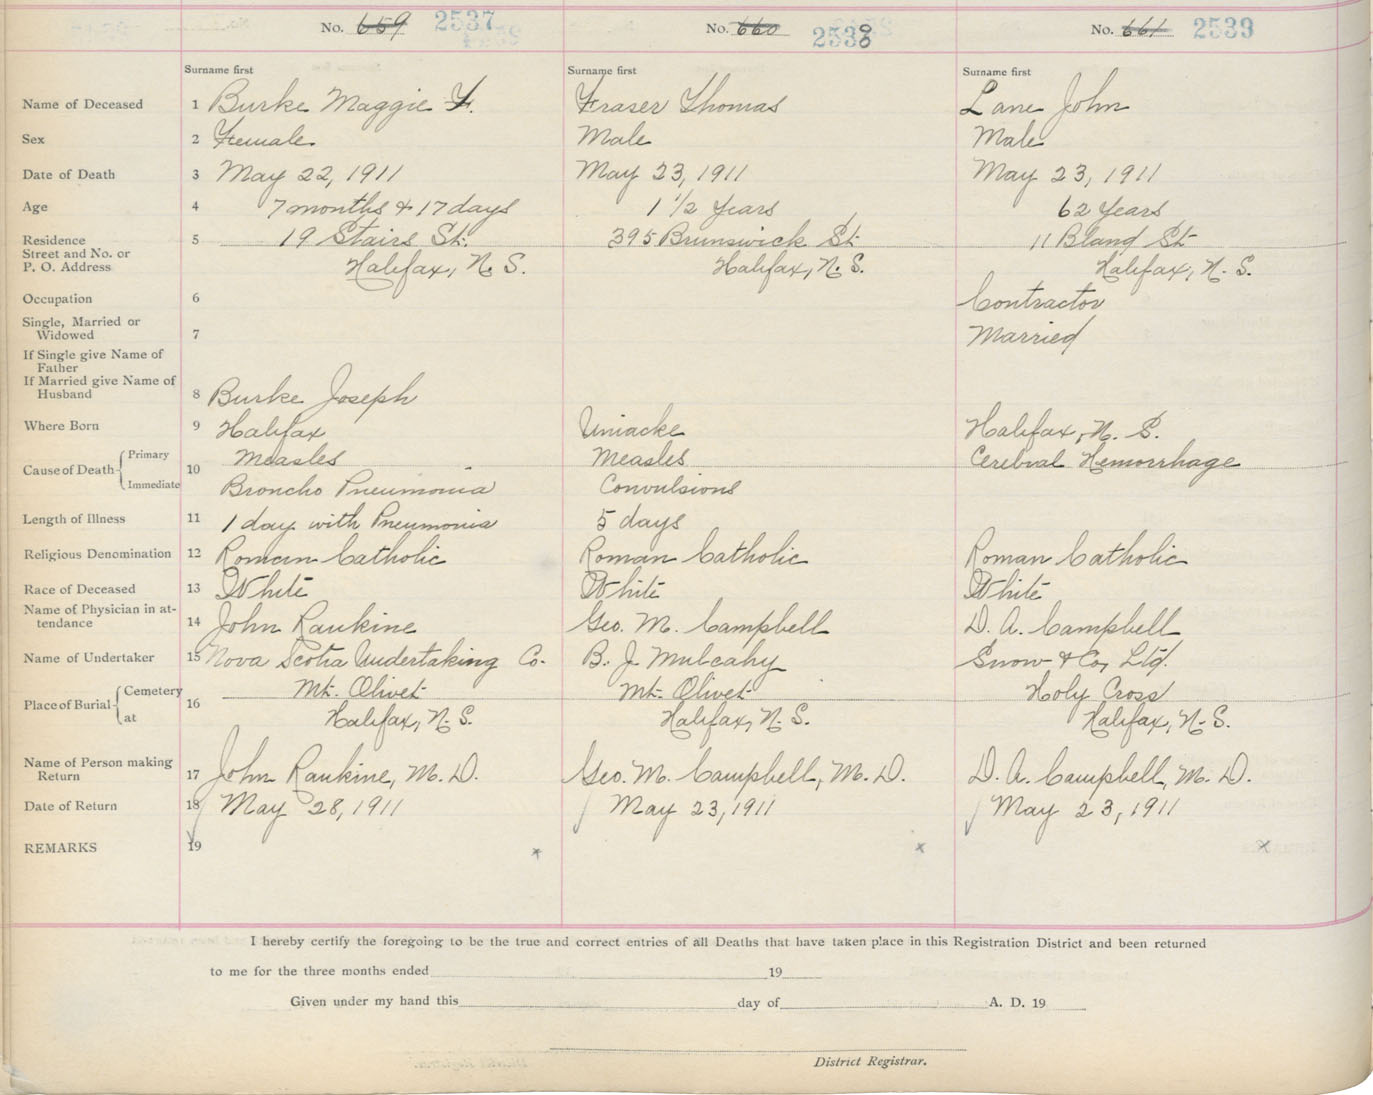 No. 659 2537 No. 660 2538 No. 661 2539
Surname first Surname first Surname first
Name of Deceased 1 Burke Maggie F. Fraser Thomas Lane John
Sex 2 Female Male Male
Date of Death 3 May 22, 1911 May 23, 1911 May 23, 1911
Age 4 7 months & 17 days 1 1/2 Years 62 Years
Residence 5 19 Stairs St. 395 Brunswick St. 11 Bland St
Street and No. or
P. O. Address Halifax, N. S. Halifax, N. S. Halifax, N. S.
Occupation 6 Contractor
Single, Married or
Widowed 7 Married
If Single give Name of
Father
If Married give Name of
Husband 8 Burke Joseph
Where Born 9 Halifax Uniacke Halifax, N. S.
Cause of Death Primary 10 Measles Measles Cerebral Hemorrhage
Immediate Broncho Pneumonia Convulsions
Length of Illness 11 1 day with Pneumonia 5 days
Religious Denomination 12 Roman Catholic Roman Catholic Roman Catholic
Race of Deceased 13 White White White
Name of Physician in at-
tendance 14 John Rankine Geo. M. Campbell D. A. Campbell
Name of Undertaker 15 Nova Scotia Undertaking Co. B. J. Mulcahy Snow & Co, Ltd.
Place of Burial Cemetery 16 Mt. Olivet Mt. Olivet Holy Cross
at Halifax, N. S. Halifax, N. S. Halifax, N. S.
Name of Person making
Return 17 John Rankine, M. D. Geo. M. Campbell, M. D. D. A. Campbell, M. D.
Date of Return 18 May 28, 1911 May 23, 1911 May 23, 1911
REMARKS 19 x x x
I hereby certify the foregoing to be the true and correct entries of all Deaths that have taken place in this Registration District and been returned
to me for the three months ended 19
Given under my hand this day of A. D. 19
District Registrar.